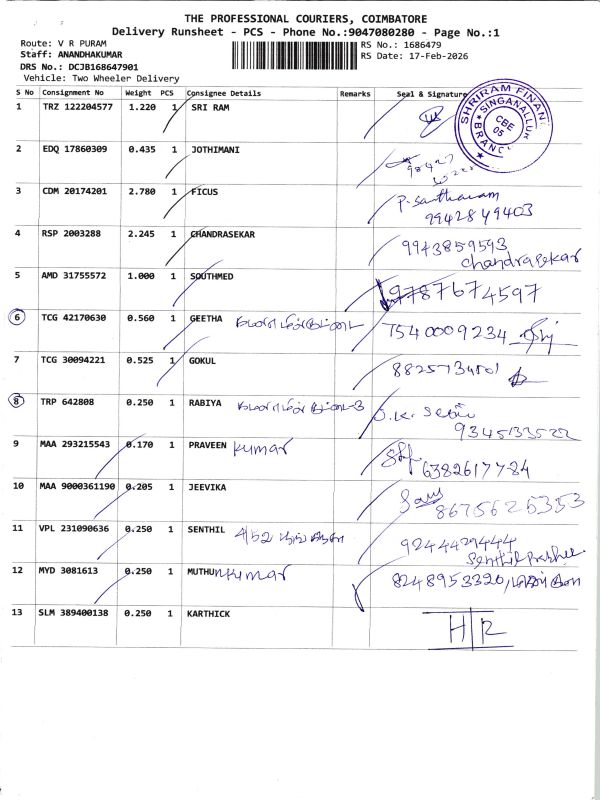 THE PROFESSIONAL COURIERS, COIMBATORE
Delivery Runsheet - PCS - Phone No.:9047080280 - Page No.:1
Route: V R PURAM
Staff: ANANDHAKUMAR
DRS No.: DCJB168647901
Vehicle: Two Wheeler Delivery
RS No.: 1686479
RS Date: 17-Feb-2026
S No Consignment No Weight PCS Consignee Details Remarks Seal & Signature
1 TRZ 122204577 1.220 1 SRI RAM
SHRIRAM FINAN
SINGANALLUR
BRANCH
CBE
05
2 EDQ 17860309 0.435 1 JOTHIMANI
3 CDM 20174201 2.780 1 FICUS P. Santharam
9942849403
4 RSP 2003288 2.245 1 CHANDRASEKAR 9943859593
chandrasekar
5 AMD 31755572 1.000 1 SOUTHMED 9787674597
6 TCG 42170630 0.560 1 GEETHA 7540009234
7 TCG 30094221 0.525 1 GOKUL
8 TRP 642808 0.250 1 RABIYA
9345133522
9 MAA 293215543 0.170 1 PRAVEEN kumar 6382617784
10 MAA 9000361190 0.205 1 JEEVIKA 8675625353
11 VPL 231090636 0.250 1 SENTHIL 4/52 9244429444
12 MYD 3081613 0.250 1 MUTHU kumar 8248953320
13 SLM 389400138 0.250 1 KARTHICK H/R